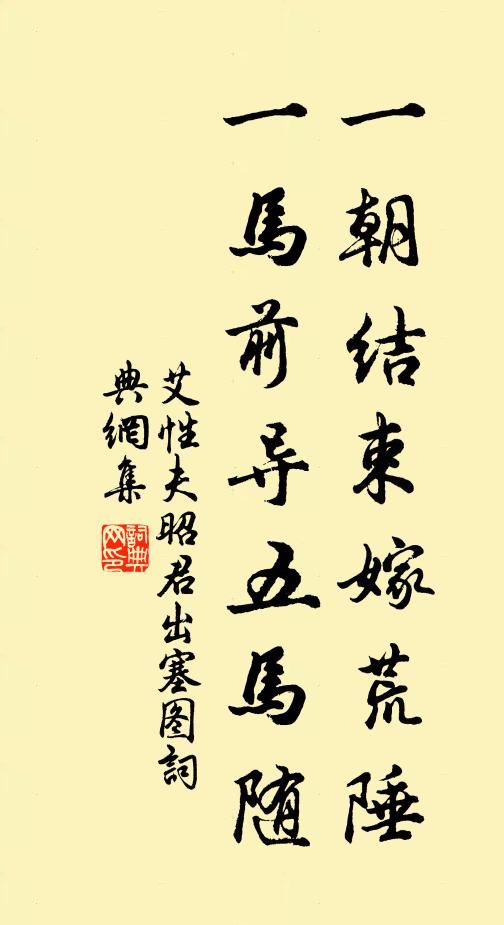 一朝结束嫁荒陲
一馬前导五馬随
艾性夫昭君出塞图詞
典網集
詞典
网印